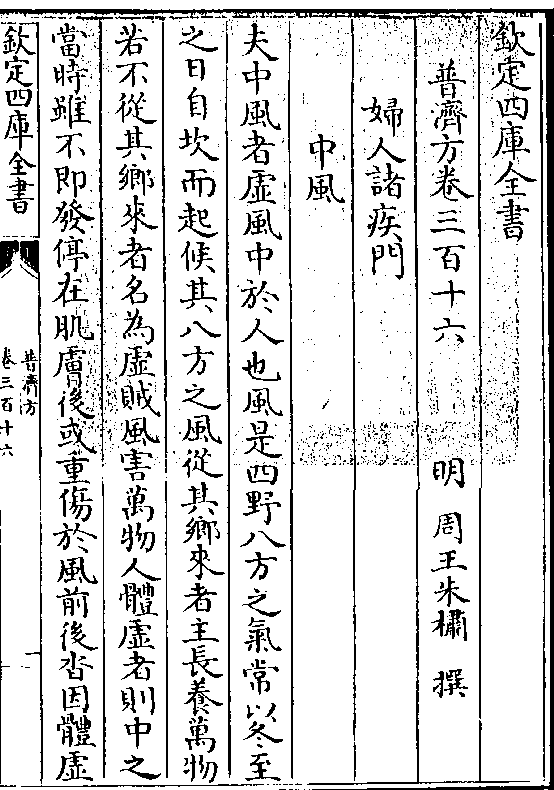 欽定四庫全書
普濟方卷三百十六 明 周王朱橚 撰
婦人諸疾門
中風
夫中風者虛風中於人也風是四野八方之氣常以冬至
之日自坎而起候其八方之風從其鄉來者主長養萬物
若不從其鄉來者名為虛賊風害萬物人體虛者則中之
當時雖不即發停在肌膚後或重傷於風前後沓因體虛
欽定四庫全書
普濟方
卷三百十六
一